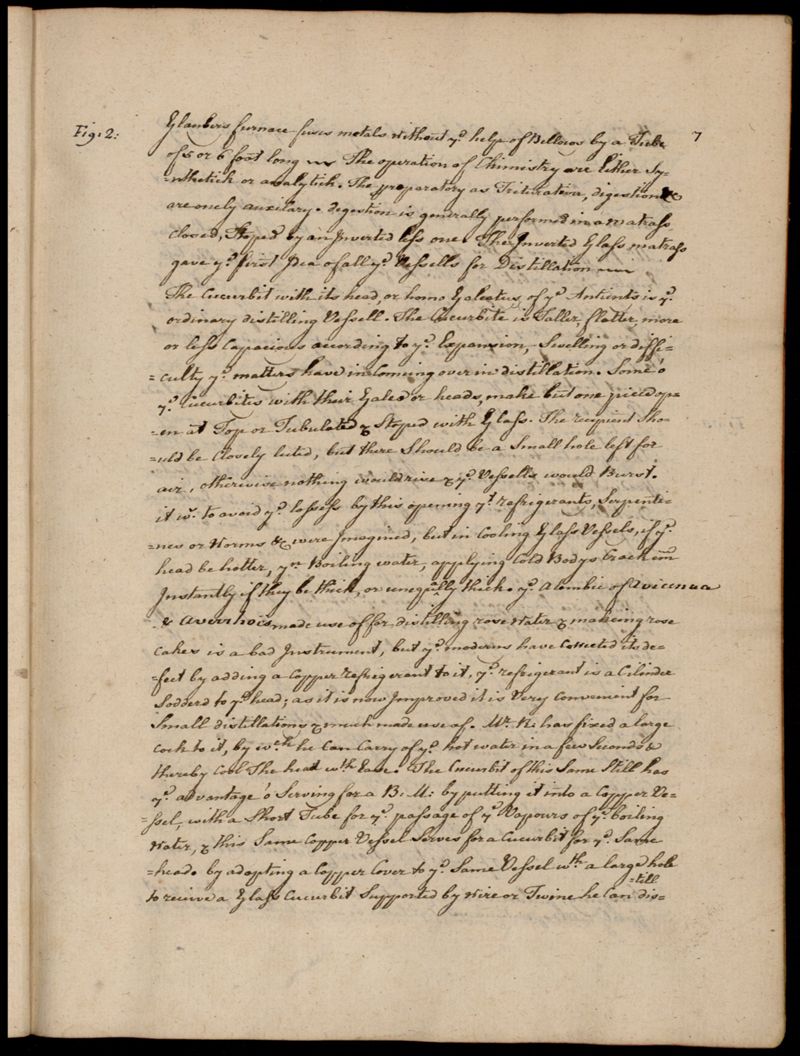 Fig: 2:
7
Glaubers furnace fuses metals without ye. help of Bellows by a Tube
of 5 or 6 foot long The operation of Chimistry are Either Sy-
=nthetick or analytick. The preparatory as Trituration, digestion &c
are onely auxilary. digestion is generally performed in a matrass
closed, Stoped by an Inverted less one. The Inverted Glass matrass
gave ye. first Idea of all ye. Vessells for Distillation
The Cucurbit with its head, or homo Galeatus of ye. Antients is ye.
ordinary distilling Vessell. The Cucurbite is Taller, flatter, more
or less Capacious according to ye. Expansion, Swelling or diffi-
=culty ye. matters have in Comeing over in distillation. Some o
ye. Cucurbites with their Galea or heads, make but one piece ope-
=en at Top or Tubulated & Stoped with Glass. The recipient Sho-
=uld be Closely luted, but there Should be a Small hole left for
air, otherwise nothing would rise & ye. Vessells would Burst.
it ws. to avoid ye. losses by this opening yt. refrigerants, Serpenti-
=nes or Worms &c were Imagined, but in Cooling Glass Vessels, if ye.
head be hotter, yn Boiling water, applying Cold Bodys Crack
Instantly if they be thick, or unequally thick. ye. alembic of Avicenna
& Averrhois made use of for distilling rose Water & makeing rose
cakes is a bad Instrument, but ye. moderns have Corrected its de-
=fect by adding a Copper refrigerent to it, ye. refrigerant is a Cilinder
Sodderd to ye. head; as it is now Improved it is Very Convenient for
Small distillations & much made use of. Mr. has fixed a large
Cock to it, by wch he Can Carry of ye. hot water in a few Seconds &
thereby Cool The head wth Ease. The Cucurbit of this Same Still has
ye. advantage o Serving for a B: M: by putting it into a Copper Ve-
=ssel, with a Short Tube for ye. passage of ye. Vapours of ye. boiling
Water, & this Same Copper Vessel Serves for a Cucurbit for ye. Same
=head. by adapting a Copper Cover to ye. Same Vessel wth a large hole
to receive a Glass Cucurbit Supported by Wire or Twine he Can dis=
=till